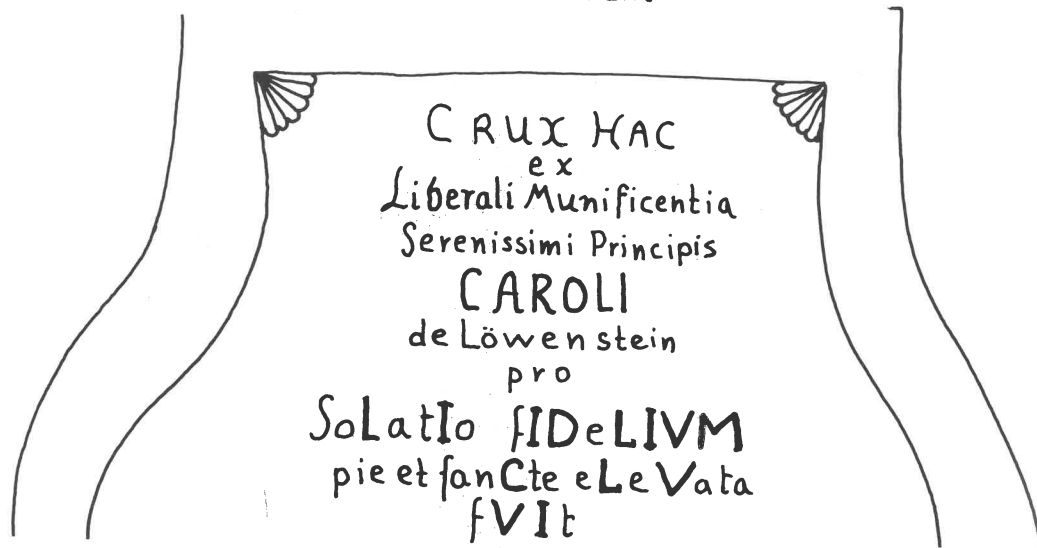 CRUX HAC
ex
Liberali Munificentia
Serenissimi Principis
CAROLI
de Löwenstein
pro
SoLatIo fIDeLIVM
pie et ſanCte eLeVata
fVIt